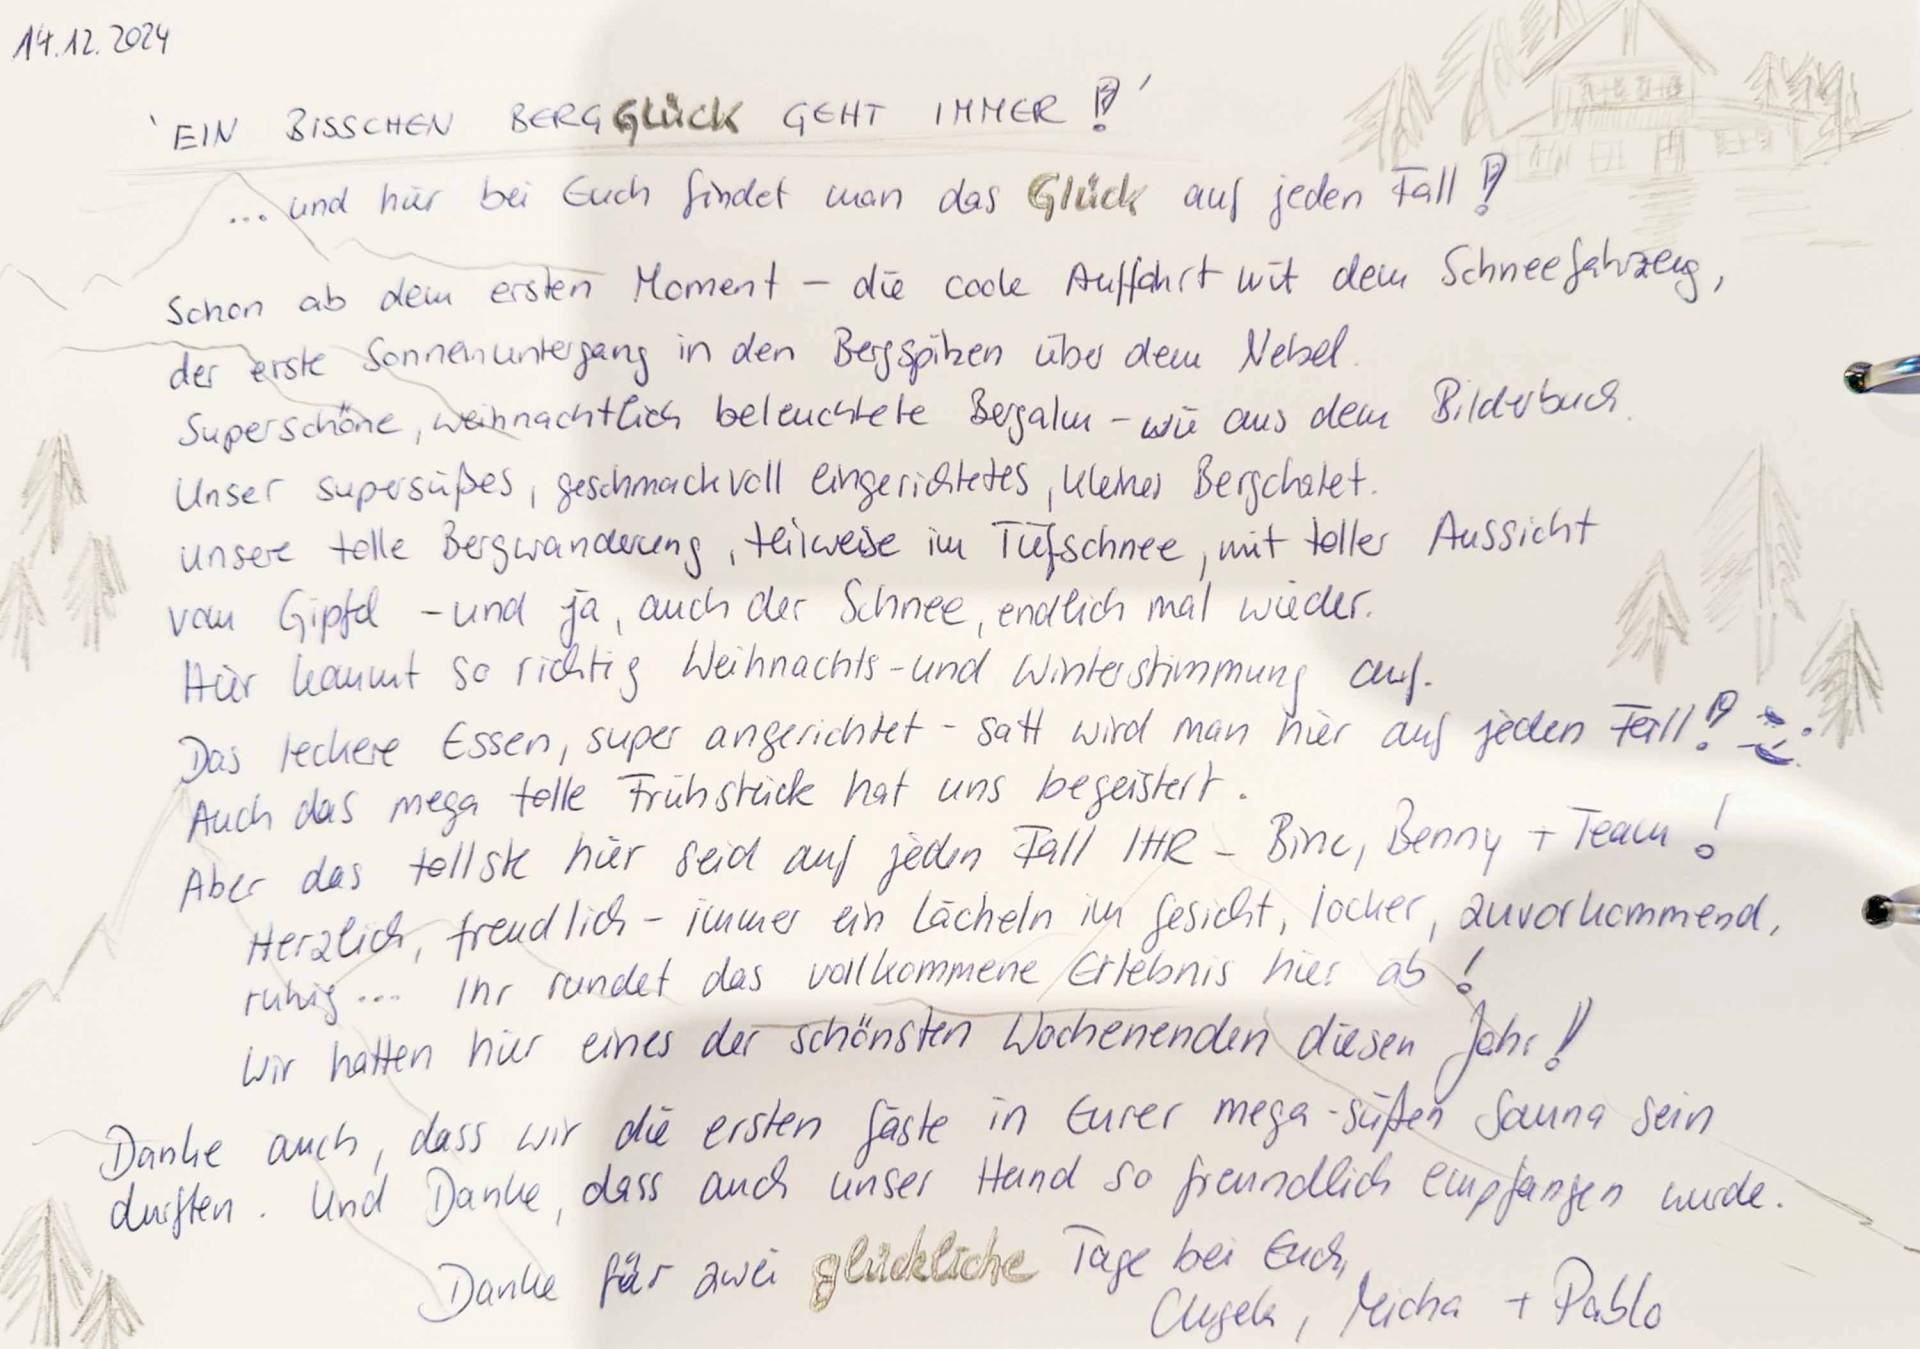 14.12.2024
'EIN BISSCHEN BERGGLÜCK GEHT IMMER!'
... und hier bei Euch findet man das Glück auf jeden Fall!
Schon ab dem ersten Moment – die coole Auffahrt mit dem Schneefahrzeug,
der erste Sonnenuntergang in den Bergspitzen über dem Nebel.
Superschöne, weihnachtlich beleuchtete Bergalm – wie aus dem Bilderbuch.
Unser supersüßes, geschmackvoll eingerichtetes, kleines Bergchalet.
Unsere tolle Bergwanderung, teilweise im Tiefschnee, mit toller Aussicht
vom Gipfel – und ja, auch der Schnee, endlich mal wieder.
Hier kommt so richtig Weihnachts- und Winterstimmung auf.
Das leckere Essen, super angerichtet – satt wird man hier auf jeden Fall!
Auch das mega tolle Frühstück hat uns begeistert.
Aber das tollste hier seid auf jeden Fall IHR – Bine, Benny + Team!
Herzlich, freundlich – immer ein Lächeln im Gesicht, locker, zuvorkommend,
ruhig ... Ihr rundet das vollkommene Erlebnis hier ab!
Wir hatten hier eines der schönsten Wochenenden diesen Jahr!
Danke auch, dass wir die ersten Gäste in Eurer mega-süßen Sauna sein
durften. Und Danke, dass auch unser Hund so freundlich empfangen wurde.
Danke für zwei glückliche Tage bei Euch,
Angela, Micha + Pablo